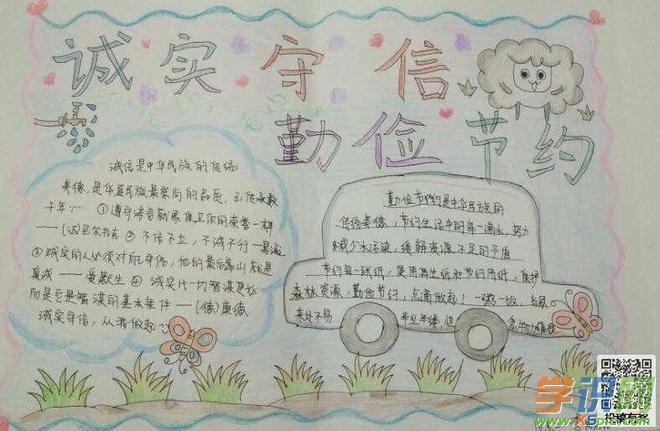 诚实守信
勤俭节约
诚信是中华民族的传统
美德,是华夏民族最崇尚的品质,
千年…… ①遵守诺言就像保卫你的荣誉一样
——(法)巴尔扎克 ②不信不立,不诚不行——晁说之
③诚实的人必须对自己守信,他的最后靠山就是
真诚——爱默生 ④诚实比一切智谋更好
而且它是智谋的基本条件——(德)康德
诚实守信,从我做起
勤俭节约是中华民族的
传统美德,节约生活中的每一滴水,努力
减少水污染,缓解资源不足的矛盾
节约每一张纸,使用再生纸和节约用纸,保护
森林资源,勤俭节约,点滴做起!一粥一饭,当思
来处不易 半丝半缕,恒
念物力维艰
学识网
www.
X5
投稿有奖